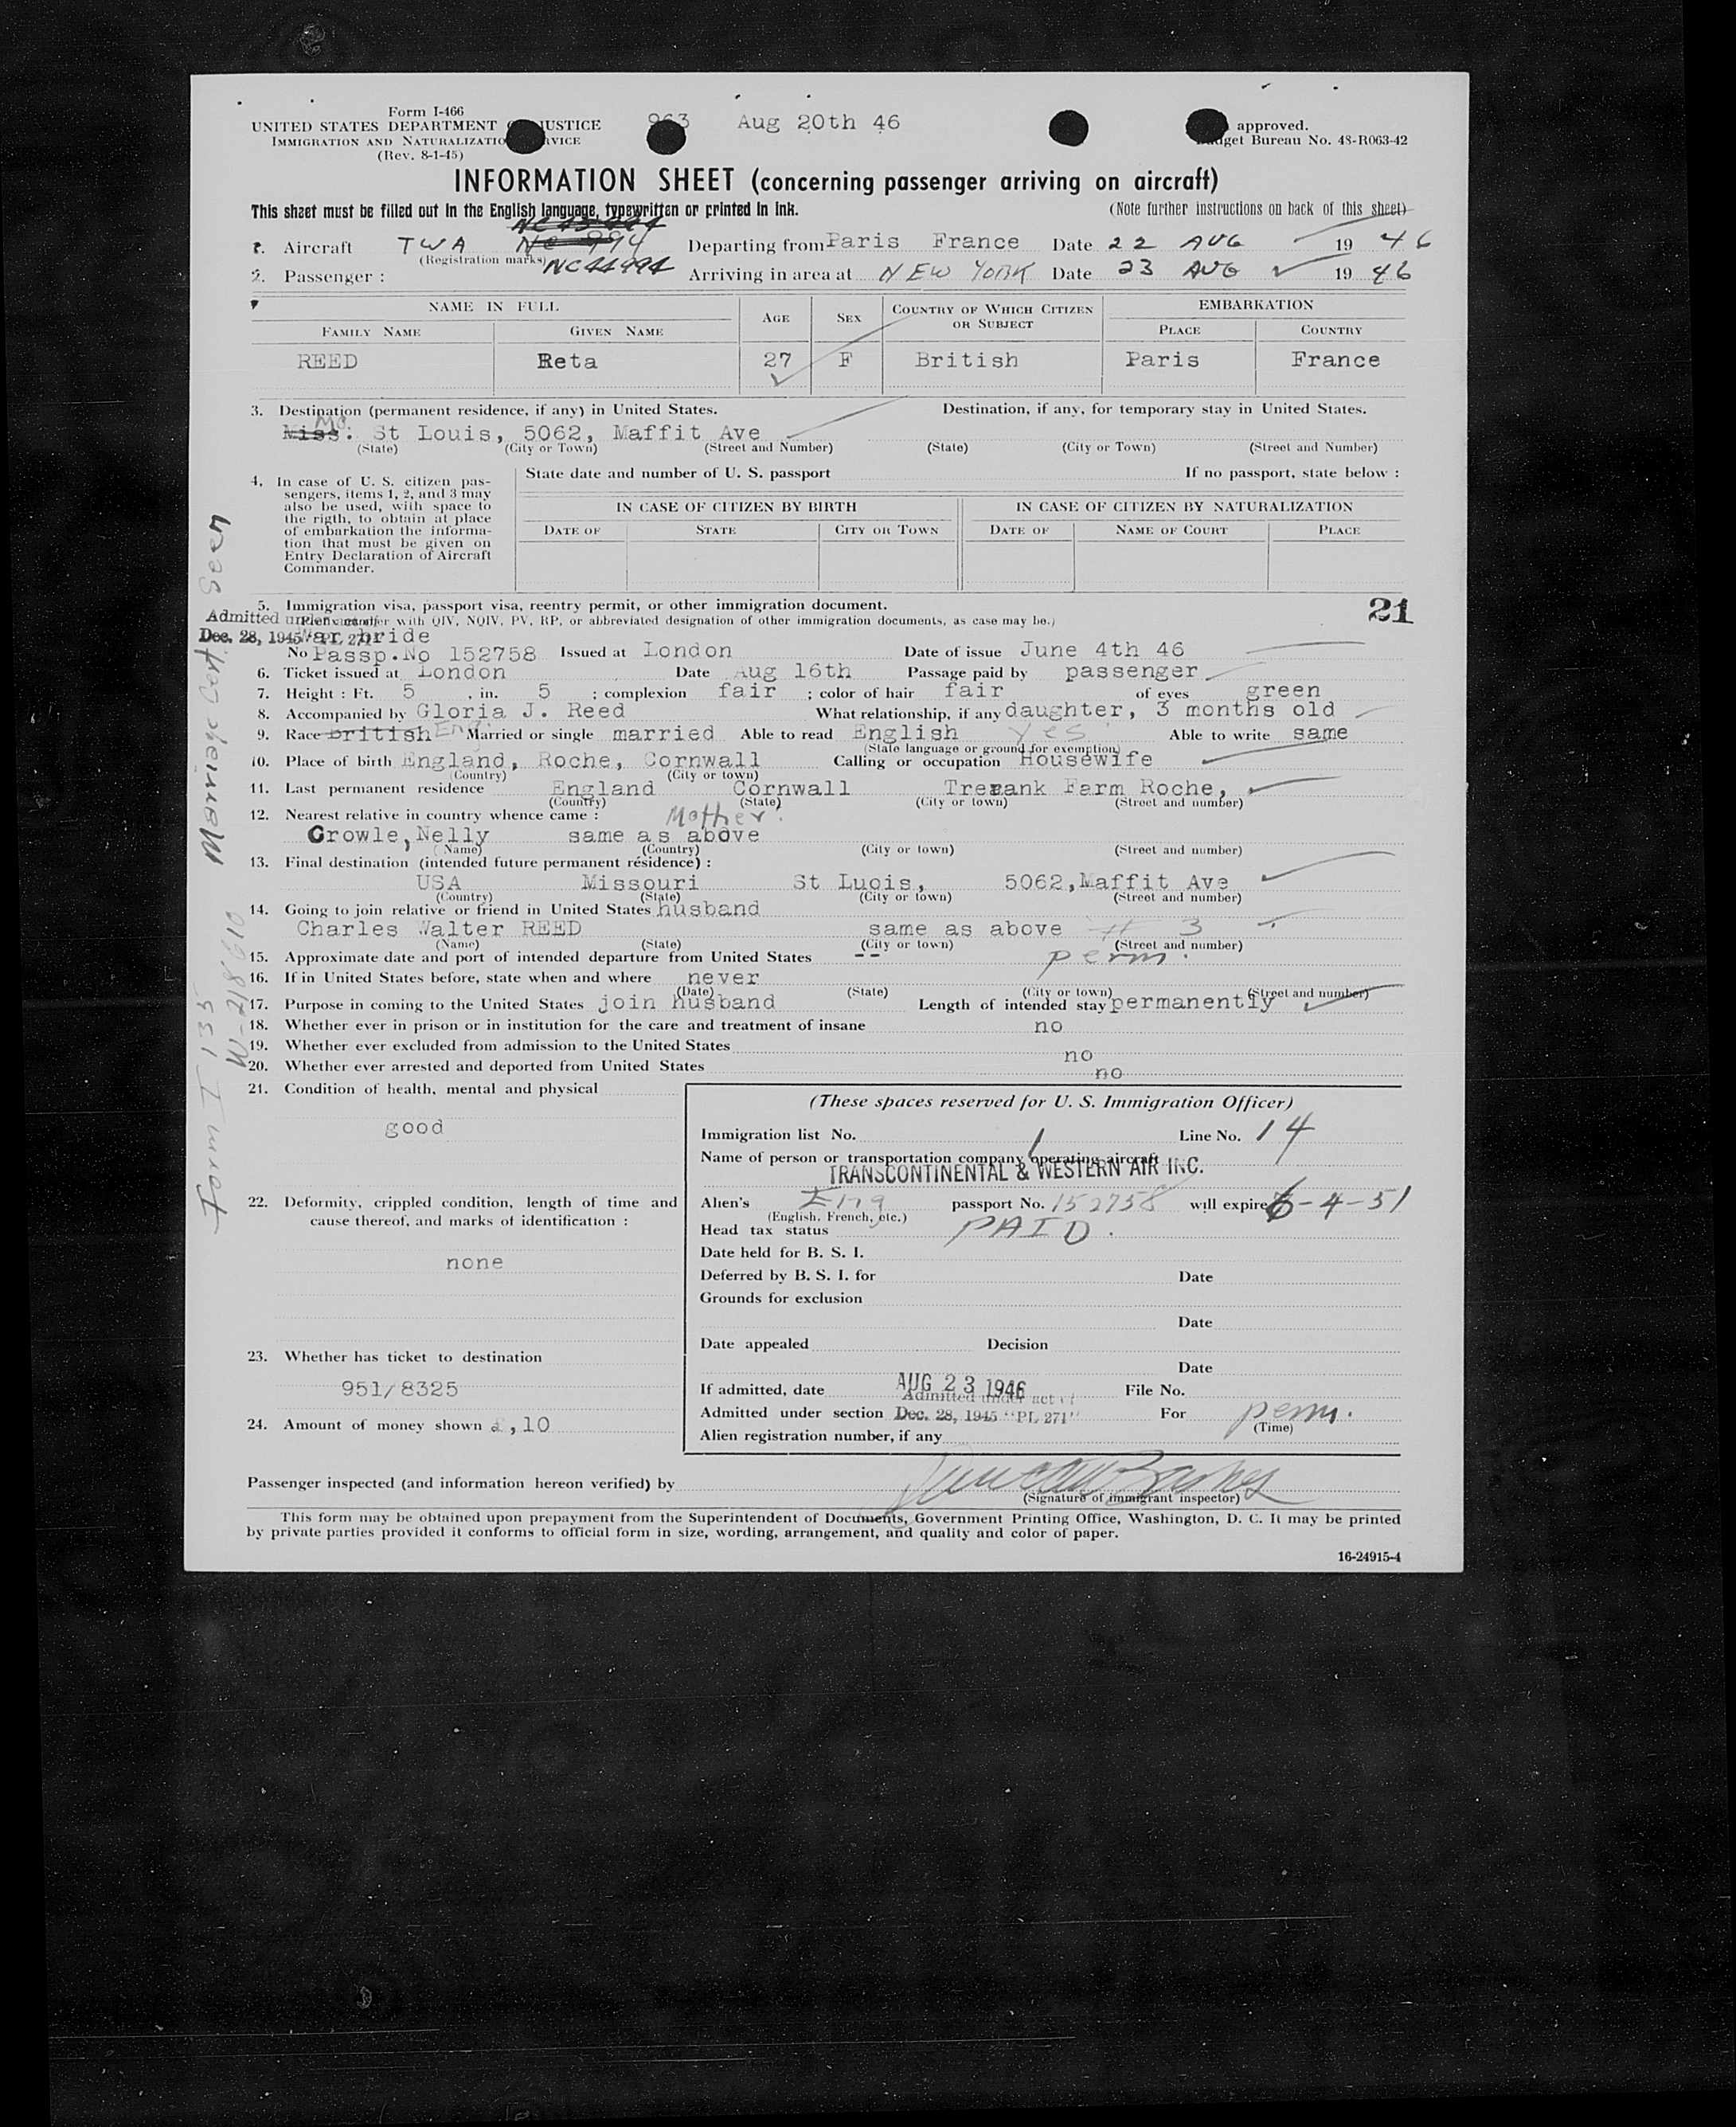 Form I-466
UNITED STATES DEPARTMENT JUSTICE
IMMIGRATION AND NATURALIZATION SERVICE
(Rev. 8-1-45)
963 Aug 20th 46
approved.
Budget Bureau No. 43-R063-42
INFORMATION SHEET (concerning passenger arriving on aircraft)
This sheet must be filled out in the English language, typewritten or printed in ink.
(Note further instructions on back of this sheet)
1. Aircraft TWA NC 994 Departing from Paris France Date 22 AUG 19 46
(Registration marks) NC44994
2. Passenger : Arriving in area at NEW YORK Date 23 AUG 19 46
NAME IN FULL AGE SEX COUNTRY OF WHICH CITIZEN OR SUBJECT EMBARKATION
FAMILY NAME GIVEN NAME PLACE COUNTRY
REED Reta 27 F British Paris France
3. Destination (permanent residence, if any) in United States. Destination, if any, for temporary stay in United States.
Miss: Mo. St Louis, 5062, Maffit Ave
(State) (City or Town) (Street and Number) (State) (City or Town) (Street and Number)
4. In case of U. S. citizen passengers, items 1, 2, and 3 may
also be used, with space to
the rigth, to obtain at place
of embarkation the information
that must be given on
Entry Declaration of Aircraft
Commander.
State date and number of U. S. passport If no passport, state below :
IN CASE OF CITIZEN BY BIRTH IN CASE OF CITIZEN BY NATURALIZATION
DATE OF STATE CITY OR TOWN DATE OF NAME OF COURT PLACE
5. Immigration visa, passport visa, reentry permit, or other immigration document.
21
(Prefix number with QIV, NQIV, PV, RP, or abbreviated designation of other immigration documents, as case may be.)
Admitted under act of
Dec. 28, 1945 "PL 271"
War bride
No Passp.No 152758 Issued at London Date of issue June 4th 46
6. Ticket issued at London Date Aug 16th Passage paid by passenger
7. Height : Ft. 5 , in. 5 ; complexion fair ; color of hair fair of eyes green
8. Accompanied by Gloria J. Reed What relationship, if any daughter, 3 months old
9. Race British Eng. Married or single married Able to read English Yes Able to write same
(State language or ground for exemption)
10. Place of birth England, Roche, Cornwall Calling or occupation Housewife
(Country) (City or town)
11. Last permanent residence England Cornwall Trezank Farm Roche,
(Country) (State) (City or town) (Street and number)
12. Nearest relative in country whence came : Mother.
Crowle, Nelly same as above
(Name) (Country) (City or town) (Street and number)
13. Final destination (intended future permanent résidence) :
USA Missouri St Luois, 5062, Maffit Ave
(Country) (State) (City or town) (Street and number)
14. Going to join relative or friend in United States husband
Charles Walter REED same as above # 3
(Name) (State) (City or town) (Street and number)
15. Approximate date and port of intended departure from United States -- perm.
16. If in United States before, state when and where never
(Date) (State) (City or town) (Street and number)
17. Purpose in coming to the United States join husband Length of intended stay permanently
18. Whether ever in prison or in institution for the care and treatment of insane no
19. Whether ever excluded from admission to the United States no
20. Whether ever arrested and deported from United States no
21. Condition of health, mental and physical
good
22. Deformity, crippled condition, length of time and
cause thereof, and marks of identification :
none
23. Whether has ticket to destination
951/8325
24. Amount of money shown £,10
(These spaces reserved for U. S. Immigration Officer)
Immigration list No. 1 Line No. 14
Name of person or transportation company operating aircraft
TRANSCONTINENTAL & WESTERN AIR INC.
Alien's Eng passport No. 152758 will expire 6-4-51
(English, French, etc.)
Head tax status PAID.
Date held for B. S. I.
Deferred by B. S. I. for Date
Grounds for exclusion
Date
Date appealed Decision
Date
If admitted, date AUG 23 1946 File No.
Admitted under act of
Admitted under section Dec. 28, 1945 "PL 271" For perm.
(Time)
Alien registration number, if any
Passenger inspected (and information hereon verified) by
(Signature of immigrant inspector)
This form may be obtained upon prepayment from the Superintendent of Documents, Government Printing Office, Washington, D. C. It may be printed
by private parties provided it conforms to official form in size, wording, arrangement, and quality and color of paper.
16-24915-4
Marriage Cert. Seen
Form I 135